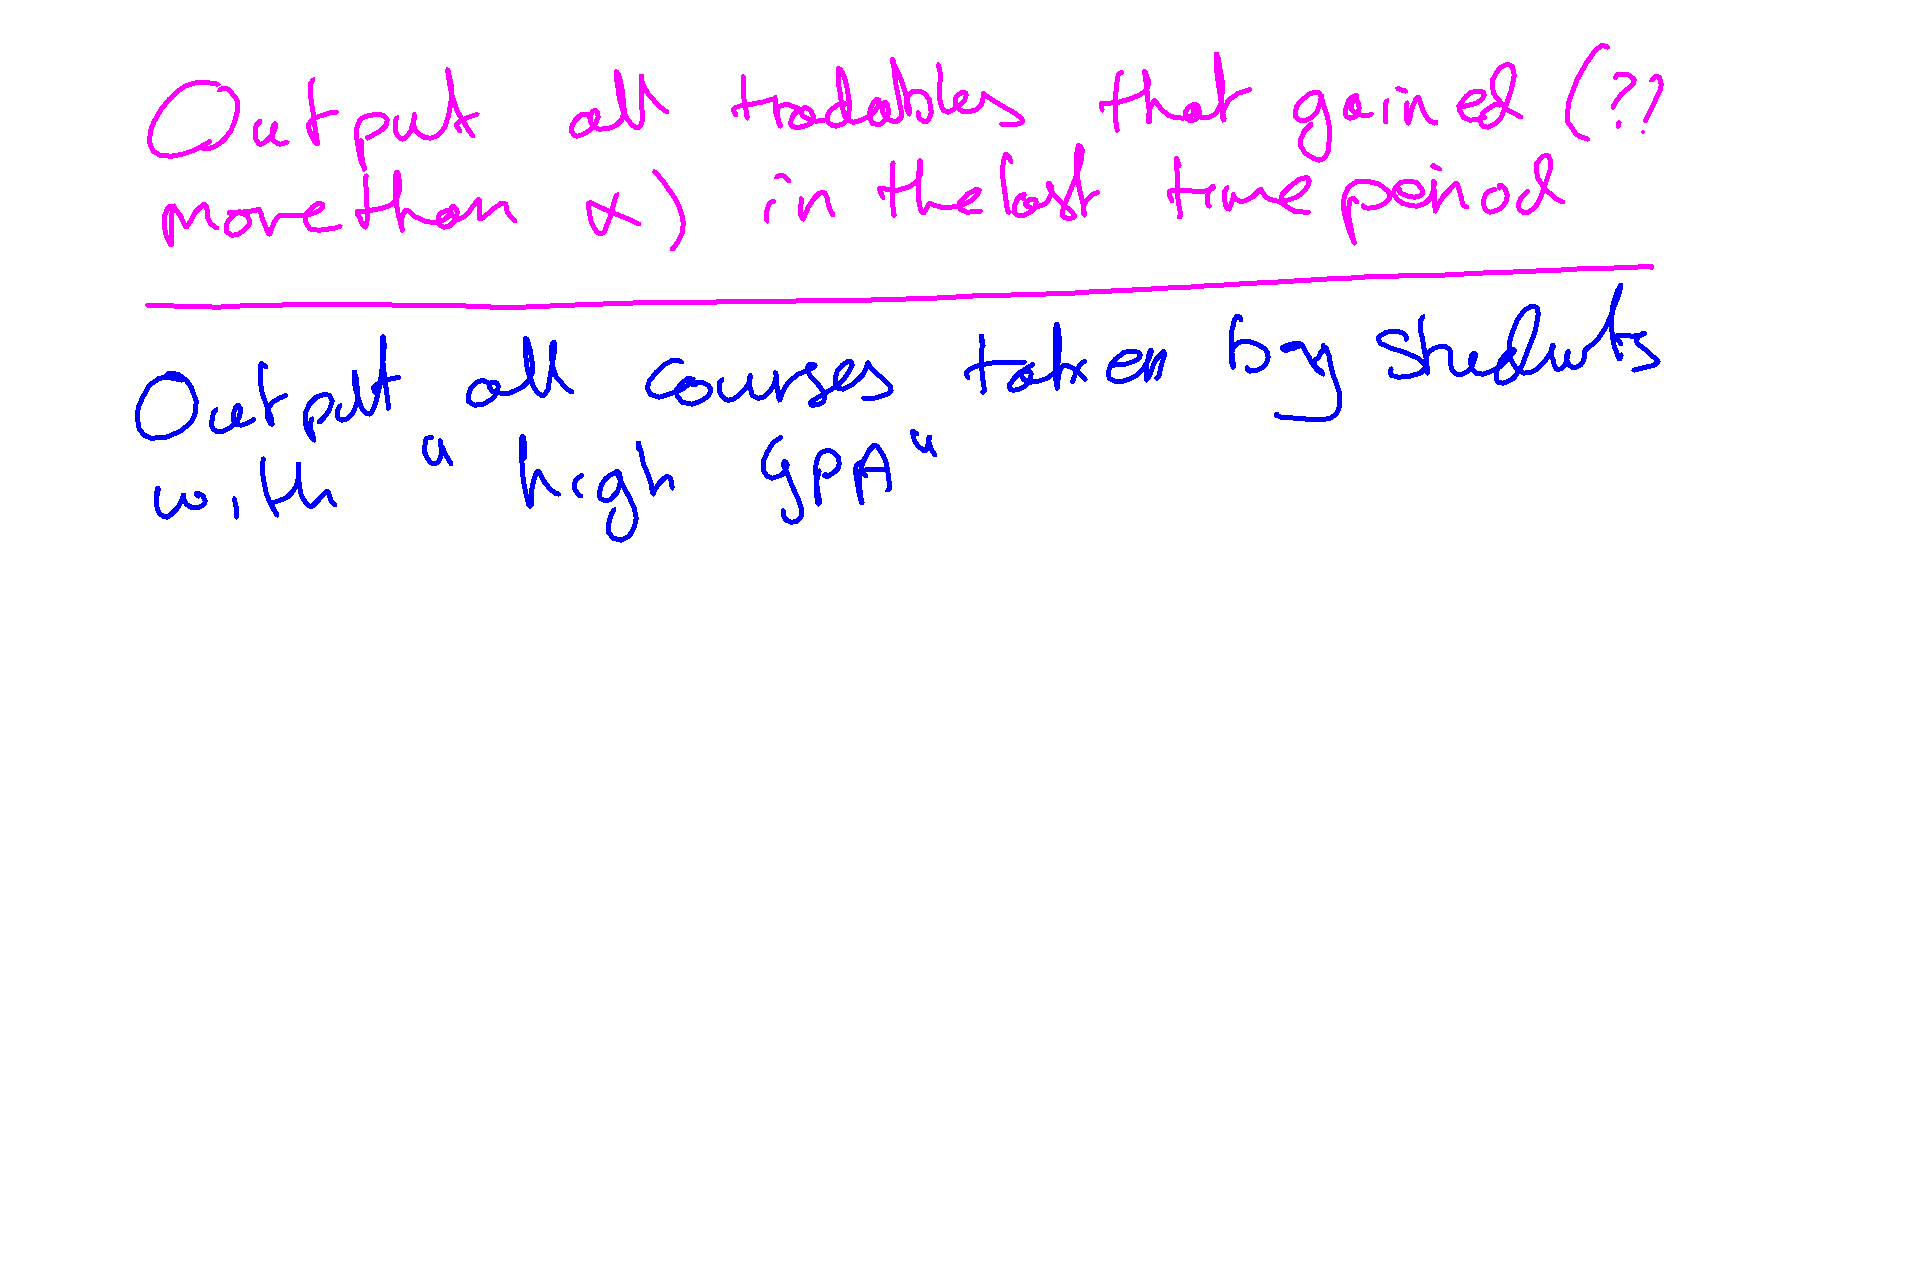 Output all tradables that gained (??
more than α) in the last time period
Output all courses taken by students
with "high GPA"